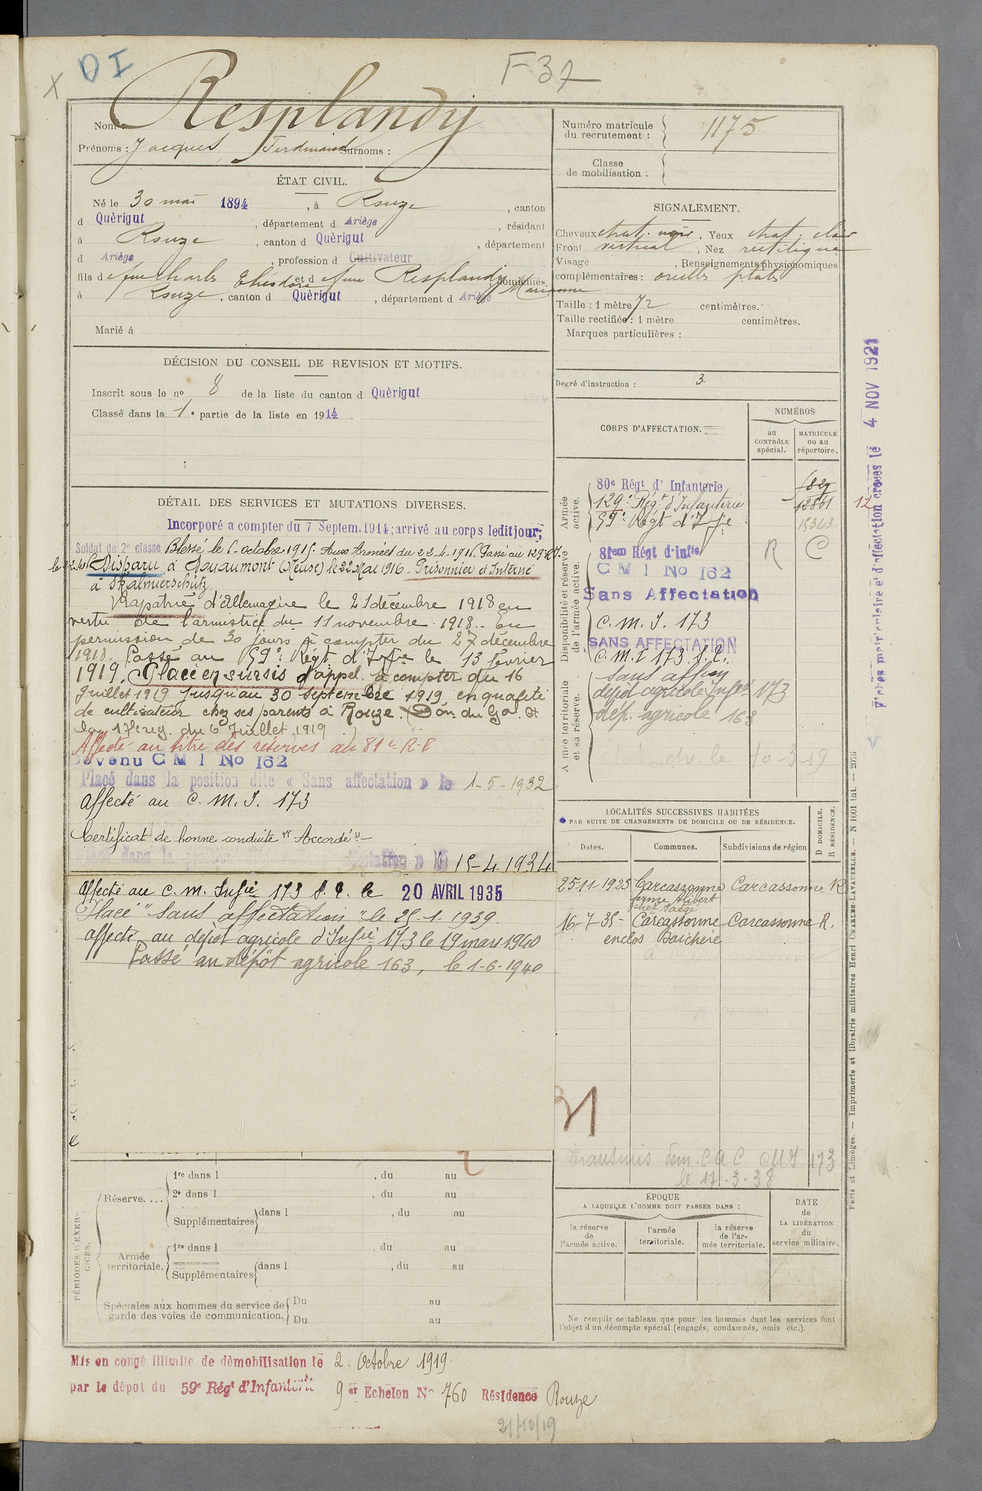 DI
F 37
Nom : Resplandy
Prénoms : Jacques Ferdinand Surnoms :
ÉTAT CIVIL.
Né le 30 mai 1894, à Rouze, canton
d Quérigut, département d Ariège, résidant
à Rouze, canton d Quérigut, département
d Ariège, profession d Cultivateur
fils d e feu Charles Théodore et d e feue Resplandy Marianne domiciliés
à Rouze, canton d Quérigut, département d Ariège
Marié à
DÉCISION DU CONSEIL DE REVISION ET MOTIFS.
Inscrit sous le no 8 de la liste du canton d Quérigut
Classé dans la 1e partie de la liste en 1914
DÉTAIL DES SERVICES ET MUTATIONS DIVERSES.
Incorporé a compter du 7 Septem. 1914; arrivé au corps ledit jour;
Soldat de 2e classe Blessé le octobre 1915. Aux Armées du Passé au 129e R.I.
Disparu à Douaumont (Meuse) le 22 Mai 1916. Prisonnier et Interné
à Skalmierschütz
Rapatrié d'Allemagne le 21 décembre 1918 en
vertu de l'armistice du 11 novembre 1918. En
permission de 30 jours à compter du 27 décembre
1918. Passé au 59e Régt d'Infie le 13 février
1919. Placé en sursis d'appel à compter du 16
Juillet 1919 jusqu'au 30 Septembre 1919 en qualité
de cultivateur chez ses parents à Rouze.
du 6 Juillet 1919
Affecté au titre des réserves au 81e R.I
Devenu C M I No 162
Placé dans la position dite « Sans affectation » le 1-5-1932
Affecté au C. M. I. 173
Certificat de bonne conduite "Accordé"
Placé dans la 15-4-1934
Affecté au C. M. Infie 173 S. P. le 20 AVRIL 1935
Placé "Sans affectation" le 25-1-1939
Affecté au dépôt agricole d'Infie 173 le 19 mars 1940
Passé au dépôt agricole 163, le 1-6-1940
PÉRIODES D'EXERCICES.
Réserve....
1re dans l , du au
2e dans l , du au
Supplémentaires dans l , du au
Armée territoriale.
1re dans l , du au
Supplémentaires dans l , du au
Spéciales aux hommes du service de garde des voies de communication.
Du au
Du au
Mis en congé illimité de démobilisation le 2 Octobre 1919
par le dépôt du 59e Régt d'Infanterie 9er Echelon No 760 Résidence Rouze
21/10/19
Numéro matricule du recrutement : 1175
Classe de mobilisation :
SIGNALEMENT.
Cheveux chat. noir, Yeux chat. clair
Front vertical, Nez rectiligne
Visage , Renseignements physionomiques
complémentaires : oreilles plates
Taille : 1 mètre 72 centimètres.
Taille rectifiée : 1 mètre centimètres.
Marques particulières :
Degré d'instruction : 3
CORPS D'AFFECTATION.
NUMÉROS
au CONTRÔLE spécial.
MATRICULE ou au répertoire.
Armée active.
80e Régt d'Infanterie
129e Régt d'Infanterie
59e Régt d'Infie
Disponibilité et réserve de l'armée active.
81em Régt d'infie R C
C M I No 162
Sans Affectation
C. M. I. 173
SANS AFFECTATION
C. M. I 173 S. P.
Sans affon
Armée territoriale et sa réserve.
dépôt agricole Infie 173
dép. agricole 163
10-3-19
LOCALITÉS SUCCESSIVES HABITÉES
PAR SUITE DE CHANGEMENTS DE DOMICILE OU DE RÉSIDENCE.
D DOMICILE. R RÉSIDENCE.
Dates. Communes. Subdivisions de région
25-11-1925 Carcassonne Carcassonne R
16-7-35 Carcassonne Carcassonne R.
enclos Baichère
31
173
le 17-3-38
ÉPOQUE
A LAQUELLE L'HOMME DOIT PASSER DANS :
la réserve de l'armée active.
l'armée territoriale.
la réserve de l'armée territoriale.
DATE de LA LIBÉRATION du service militaire.
Ne remplir ce tableau que pour les hommes dont les services font
l'objet d'un décompte spécial (engagés, condamnés, omis etc.).
Pièces matriculaire et d'affectation créées le 4 NOV 1921
Paris et Limoges. — Imprimerie et librairie militaires Henri CHARLES-LAVAUZELLE.